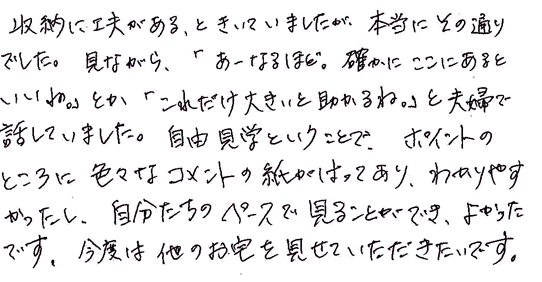 収納に工夫がある、ときいていましたが、本当にその通り
でした。見ながら、「あーなるほど。確かにここにあると
いいね。」とか「これだけ大きいと助かるね。」と夫婦で
話していました。自由見学ということで、ポイントの
ところに色々なコメントの紙がはってあり、わかりやす
かったし、自分たちのペースで見ることができ、よかった
です。今度は他のお宅を見せていただきたいです。